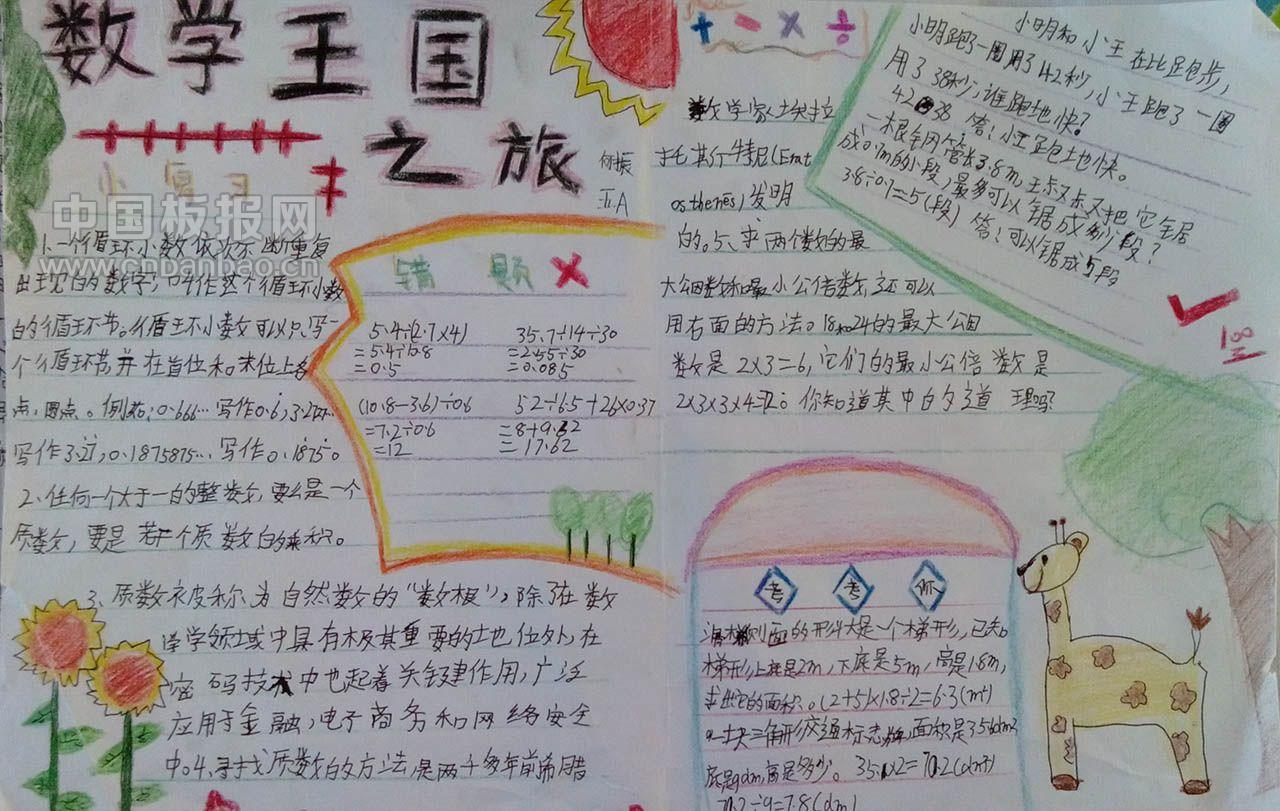 数学王国
之旅
小复习
何振
五A
中国板报网
www.cnbanbao.cn
1、一个循环小数依次不断重复
出现的数字,叫作这个循环小数
的循环节。循环小数可以只写一
个循环节,并在首位和末位上各
点 圆点。例如:0.666…写作0.6,3.27
写作3.27,0.1875875…写作0.1875。
2、任何一个大于一的整数,要么是一个
质数,要是若干个质数的乘积。
3、质数被称为自然数的“数根”,除了在数
学领域中具有极其重要的地位外,在
密码技术中也起着关键建作用,广泛
应用于金融,电子商务和网络安全
中。4、寻找质数的方法是两千多年前希腊
错题 ×
5.4÷(2.7×4) 35.7÷14÷30
=5.4÷10.8 =2.55÷30
=0.5 =0.085
(10.8-3.6)÷0.6 52÷6.5+26×0.37
=7.2÷0.6 =8+9.62
=12 =17.62
+ - × ÷
数学家埃拉
托其斤特尼(Erat
osthenes)发明
的。5、求两个数的最
大公因数和最小公倍数,还可以
用右面的方法。18和24的最大公因
数是2×3=6,它们的最小公倍数是
2×3×3×4=72。你知道其中的道理吗
小明和小王在比足包步,
小明跑了一圈用了42秒,小王跑了一圈
用了38秒,谁跑地快?
42 38 答:小王足包土地快。
一根钢管长3.8m,王叔叔又把它锯
成0.7m的小段,最多可以锯成几段?
3.8÷0.7=5(段) 答:可以锯成5段
考 考 你
面的形状是一个梯形,已知
梯形上底是2m,下底是5m,高是1.8m,
求出它的面积。(2+5)×1.8÷2=6.3(m²)
一块三角形交通标志牌,面积是35.1dm²
底是9dm,高是多少。35.1×2=70.2(dm²)
70.2÷9=7.8(dm)